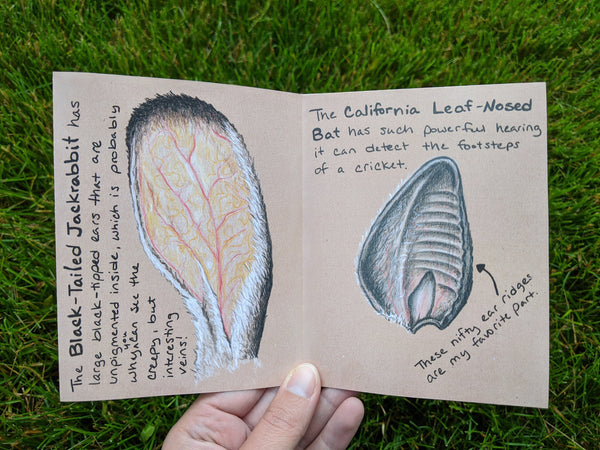 The Black-Tailed Jackrabbit has
large black-tipped ears that are
unpigmented inside, which is probably
why you can see the
creepy, but
interesting
veins!
The California Leaf-Nosed
Bat has such powerful hearing
it can detect the footsteps
of a cricket.
These nifty ear ridges
are my favorite part.